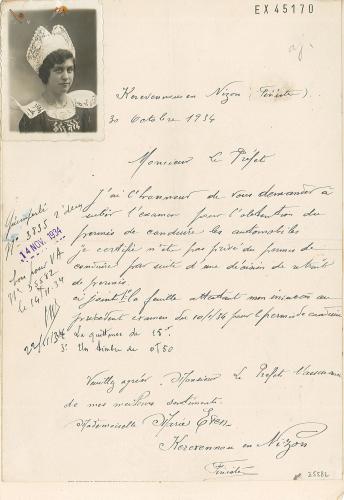 EX 45170
Kerevennou en Nizon (Finistère)
30 Octobre 1934
Monsieur Le Préfet
J'ai l'honneur de vous demander à
subir l'examen pour l'obtention du
permis de conduire les automobiles
je certifie n'etre pas privé du permis de
conduire par suite d'une décision de retrait
de permis.
ci joint 1° la feuille attestant mon insuccès au
précédent examen du 10/1/34 pour le permis de conduire
La quittance de 15f.
3° Un timbre de 0f50
Veuillez agréer, Monsieur Le Préfet l'assurance
de mes meilleurs sentiments.
Mademoiselle Marie Even
Kerevennou en Nizon
Finistère
N° 3835
14 NOV. 1934
bon pour VA
N° 25582
le 14/11 34
22/11/34
25582